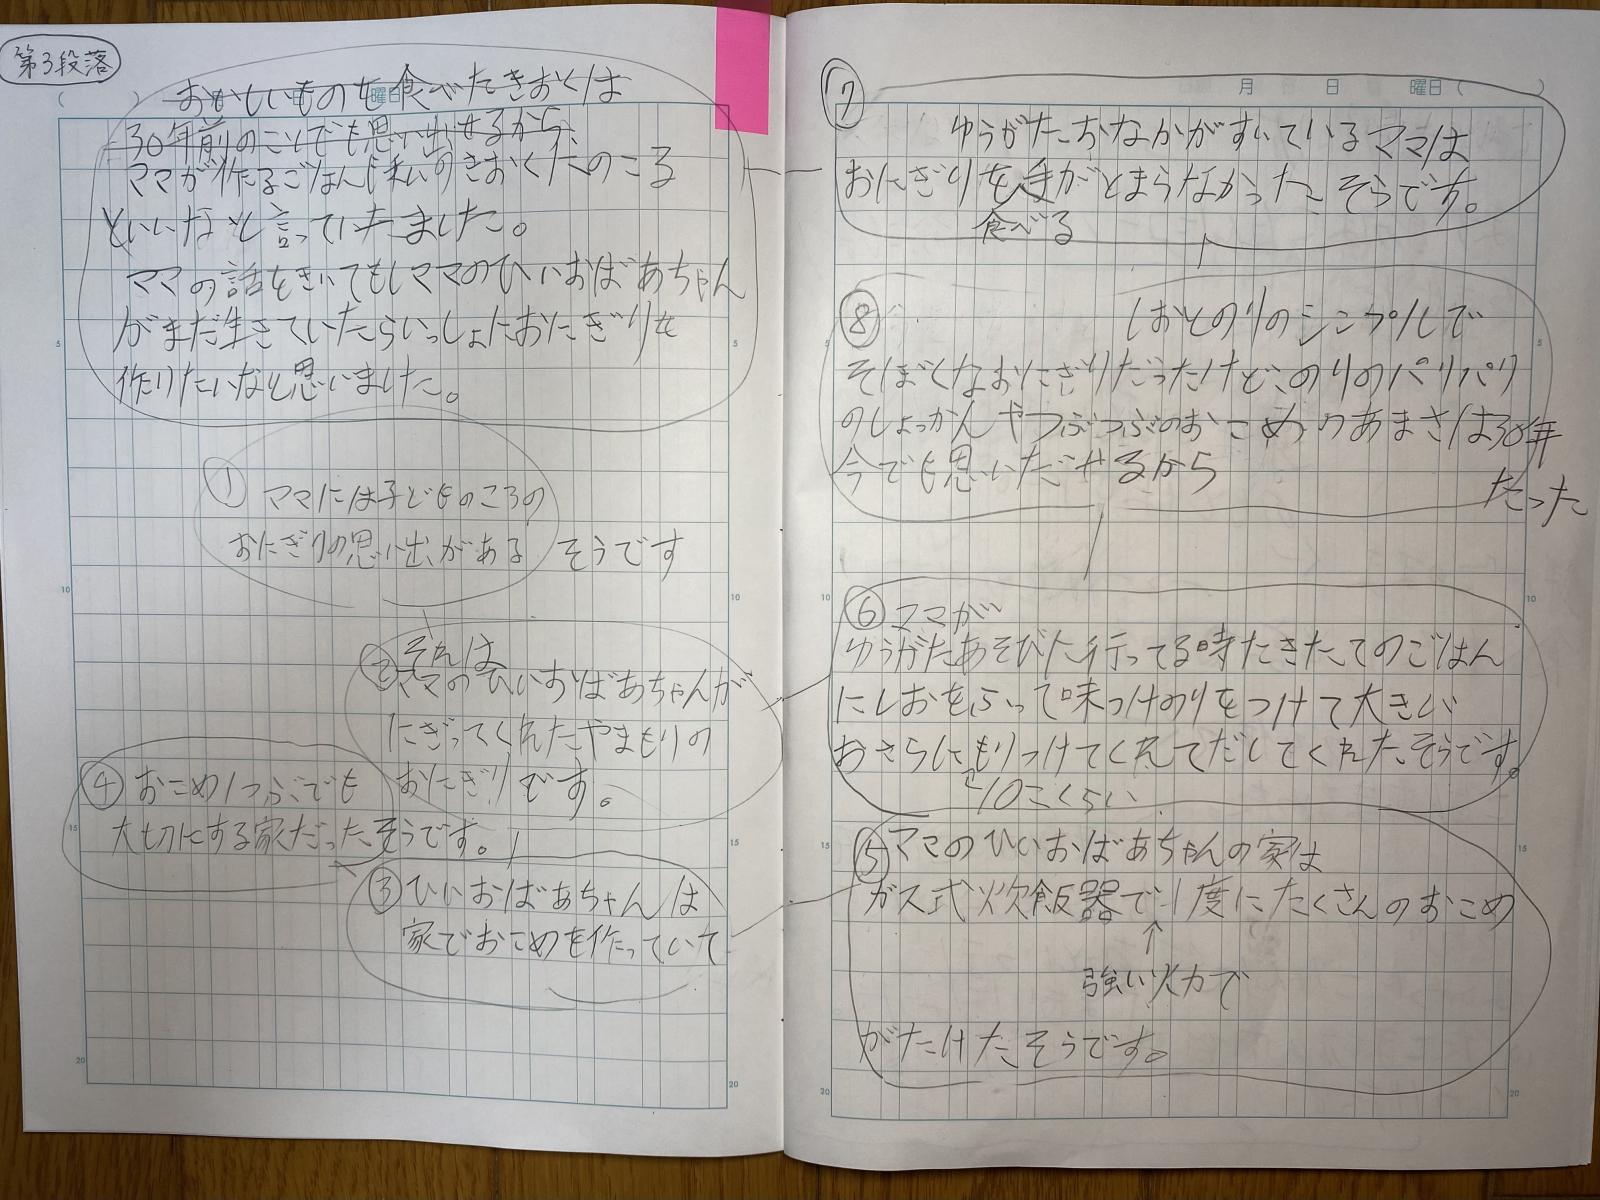 第3段落
おいしいものを食べたきおくは
30年前のことでも思い出せるから、
ママが作るごはん そのきおくにのこる
といいなと言っていました。
ママの話をきいてもしママのひいおばあちゃん
がまだ生きていたらいっしょにおにぎりを
作りたいなと思いました。
① ママには子どものころの
おにぎりの思い出がある そうです
② それは
ママのひいおばあちゃんが
にぎってくれたやまもりの
おにぎりです。
④ おこめ1つぶでも
大切にする家だったそうです。
③ ひいおばあちゃんは
家でおこめを作っていて
月 日 曜日( )
⑦ ゆうがたおなかがすいているママは
おにぎりを手がとまらなかったそうです。
食べる
⑧ しおとのりのシンプルで
そぼくなおにぎりだったけど、のりのパリパリ
のしょっかんやつぶつぶのおこめのあまさは30年
たった
今でも思いだせるから
⑥ ママが
ゆうがたあそびに行ってる時たきたてのごはん
にしおをふって味つけのりをつけて大きい
おさらにもりつけてくれてだしてくれたそうです。
10こくらい
⑤ ママのひいおばあちゃんの家は
ガス式炊飯器で1度にたくさんのおこめ
↑
強い火力で
がたけたそうです。